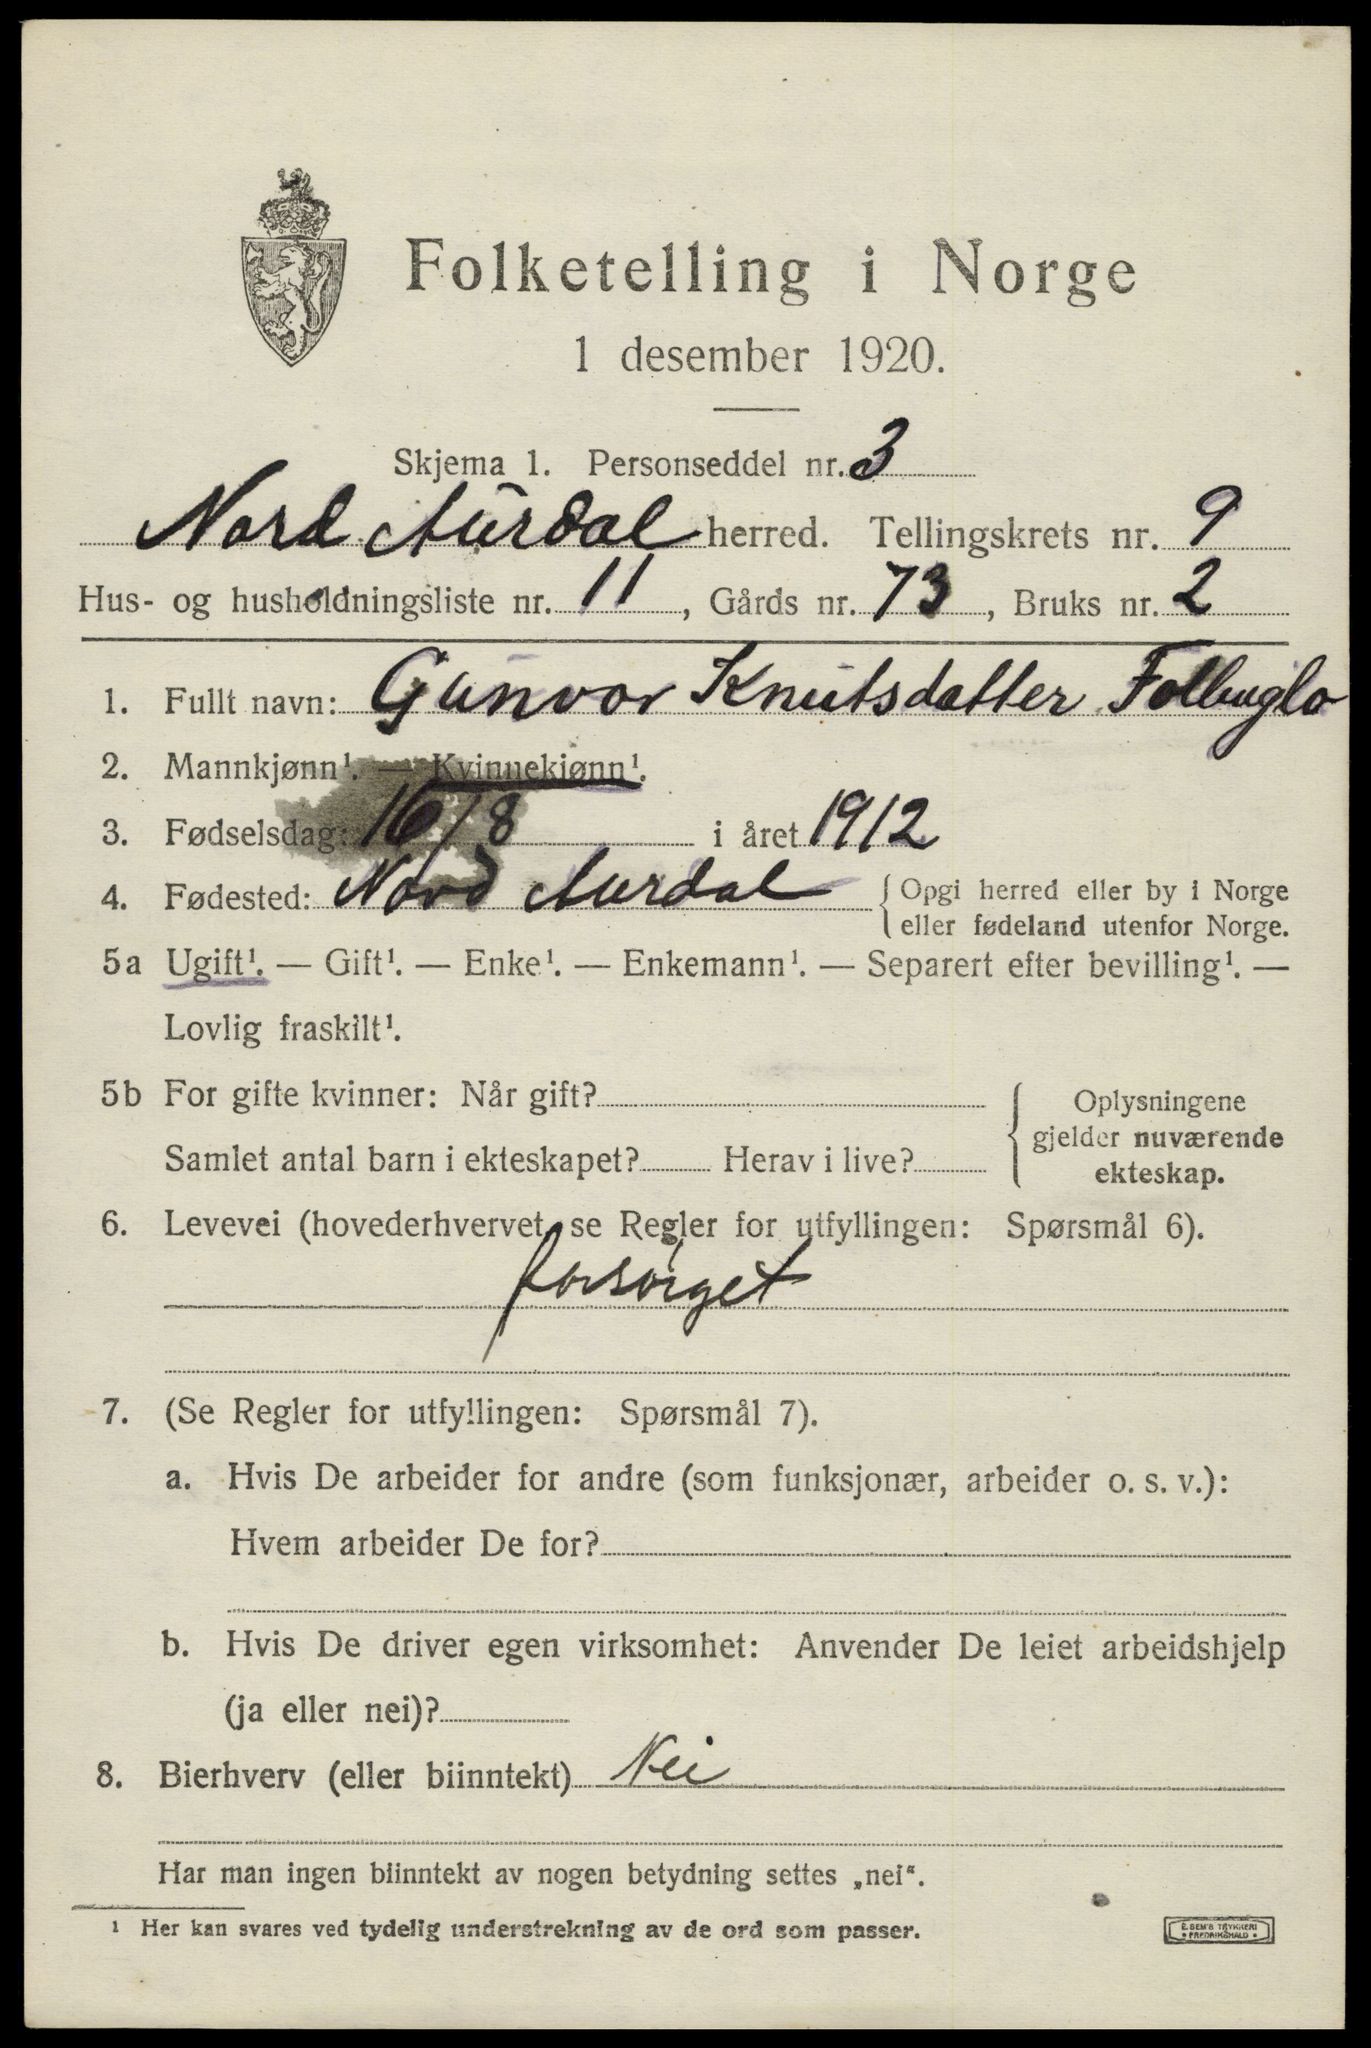 Folketelling i Norge
1 desember 1920.
Skjema 1. Personseddel nr. 3
Nord Aurdal herred. Tellingskrets nr. 9
Hus- og husholdningsliste nr. 11, Gårds nr. 73, Bruks nr. 2
1. Fullt navn: Gunvor Knutsdatter
2. Mannkjønn¹. — Kvinnekjønn¹.
3. Fødselsdag: 16/8 i året 1912
4. Fødested: Nord Aurdal {Opgi herred eller by i Norge
eller fødeland utenfor Norge.
5a Ugift¹. — Gift¹. — Enke¹. — Enkemann¹. — Separert efter bevilling¹. —
Lovlig fraskilt¹.
5b For gifte kvinner: Når gift?
Samlet antal barn i ekteskapet? Herav i live?
{Oplysningene
gjelder nuværende
ekteskap.
6. Levevei (hovederhvervet, se Regler for utfyllingen: Spørsmål 6).
forsörget
7. (Se Regler for utfyllingen: Spørsmål 7).
a. Hvis De arbeider for andre (som funksjonær, arbeider o. s. v.):
Hvem arbeider De for?
b. Hvis De driver egen virksomhet: Anvender De leiet arbeidshjelp
(ja eller nei)?
8. Bierhverv (eller biinntekt) Nei
Har man ingen biinntekt av nogen betydning settes „nei“.
¹ Her kan svares ved tydelig understrekning av de ord som passer.
E. SEM'S TRYKKERI
• FREDRIKSHALD •